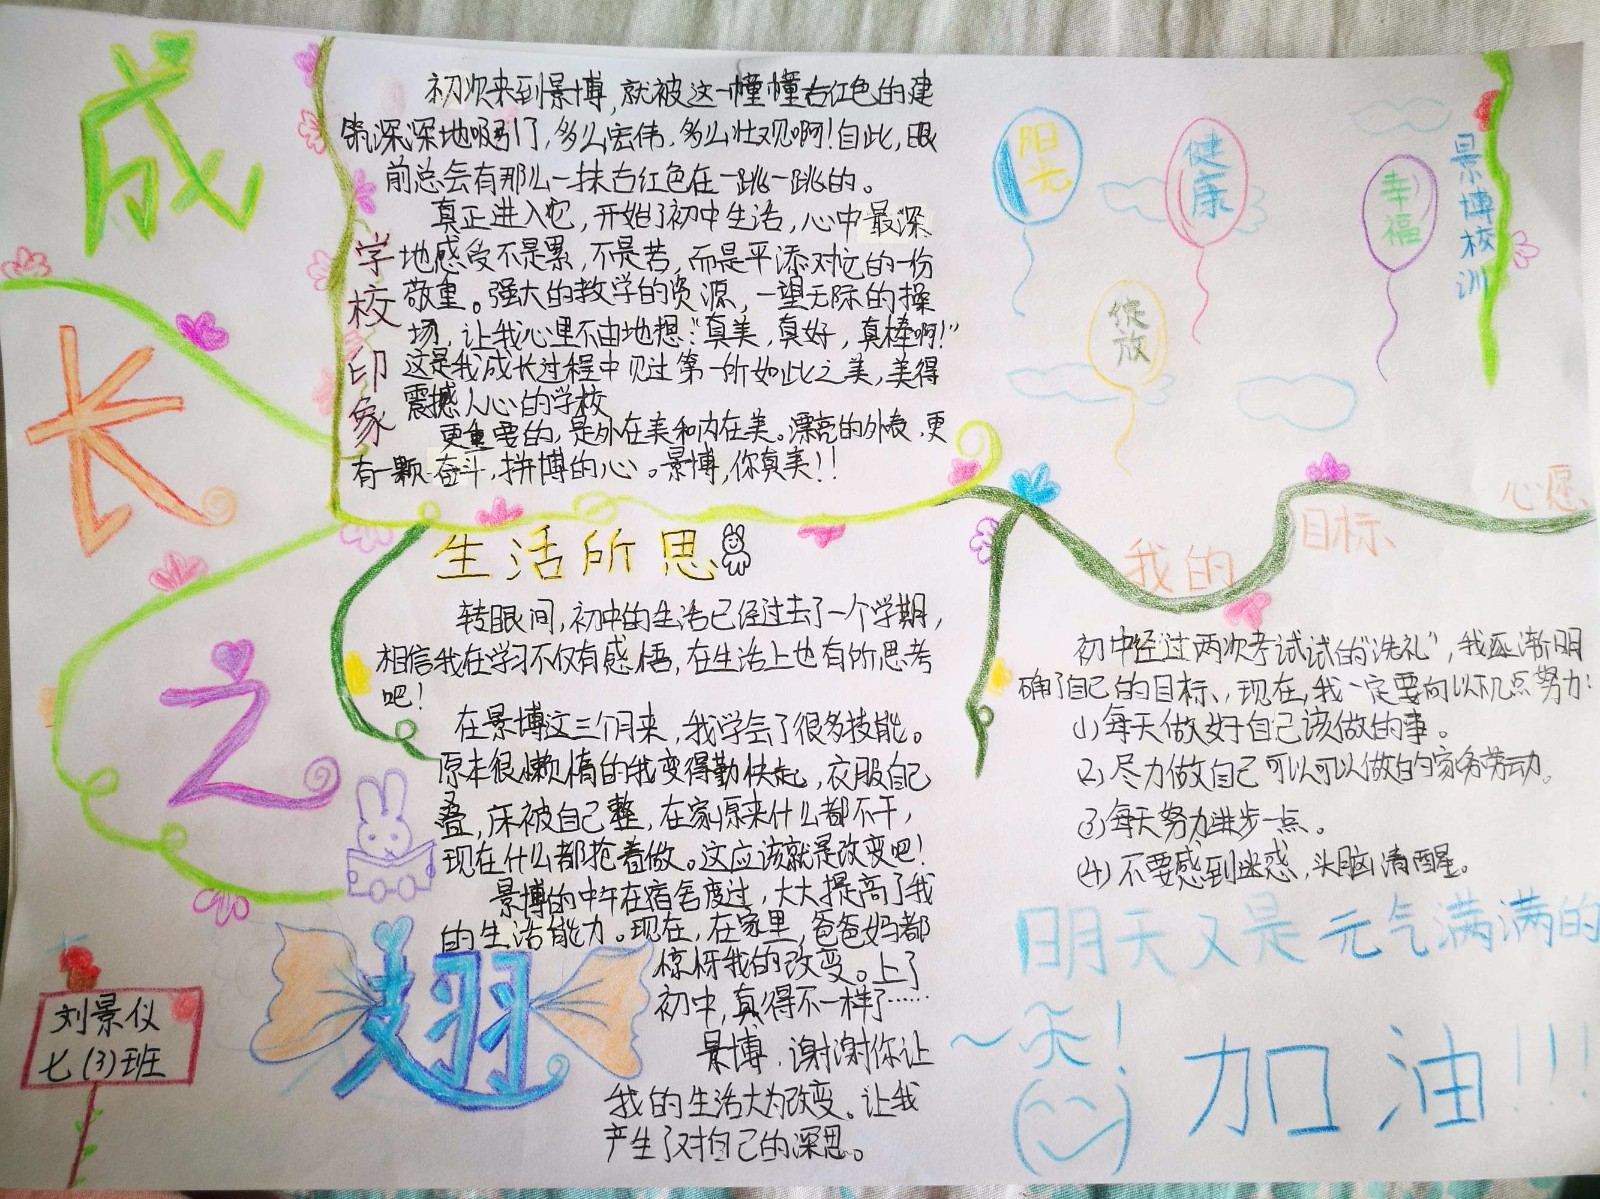 成
长
之
翅
刘景仪
七(3)班
学校印象
初次来到景博,就被这一幢幢古红色的建
筑深深地吸引了,多么宏伟,多么壮观啊!自此,眼
前总会有那么一抹古红色在一跳一跳的。
真正进入它,开始了初中生活,心中最深
地感受不是累,不是苦,而是平添对它的一份
敬重。强大的教学的资源,一望无际的操
场,让我心里不由地想:“真美,真好,真棒啊!”
这是我成长过程中见过第一所如此之美,美得
震撼人心的学校
更重要的,是外在美和内在美。漂亮的外表,更
有一颗奋斗,拼博的心。景博,你真美!!
生活所思
转眼间,初中的生活已经过去了一个学期,
相信我在学习不仅有感悟,在生活上也有所思考
吧!
在景博这三个月来,我学会了很多技能。
原本很懒惰的我变得勤快起,衣服自己
叠,床被自己整,在家原来什么都不干,
现在什么都抢着做。这应该就是改变吧!
景博的中午在宿舍度过,大大提高了我
的生活能力。现在,在家里,爸爸妈都
惊讶我的改变。上了
初中,真得不一样了……
景博,谢谢你让
我的生活大为改变。让我
产生了对自己的深思。
景博校训
阳光
健康
幸福
绽放
我的目标
心愿
初中经过两次考试试的“洗礼”,我逐渐明
确了自己的目标、现在,我一定要向以下几点努力:
(1)每天做好自己该做的事。
(2)尽力做自己可以可以做的家务劳动。
(3)每天努力进步一点。
(4)不要感到迷惑,头脑清醒。
明天又是元气满满的
一天!
加油!!!